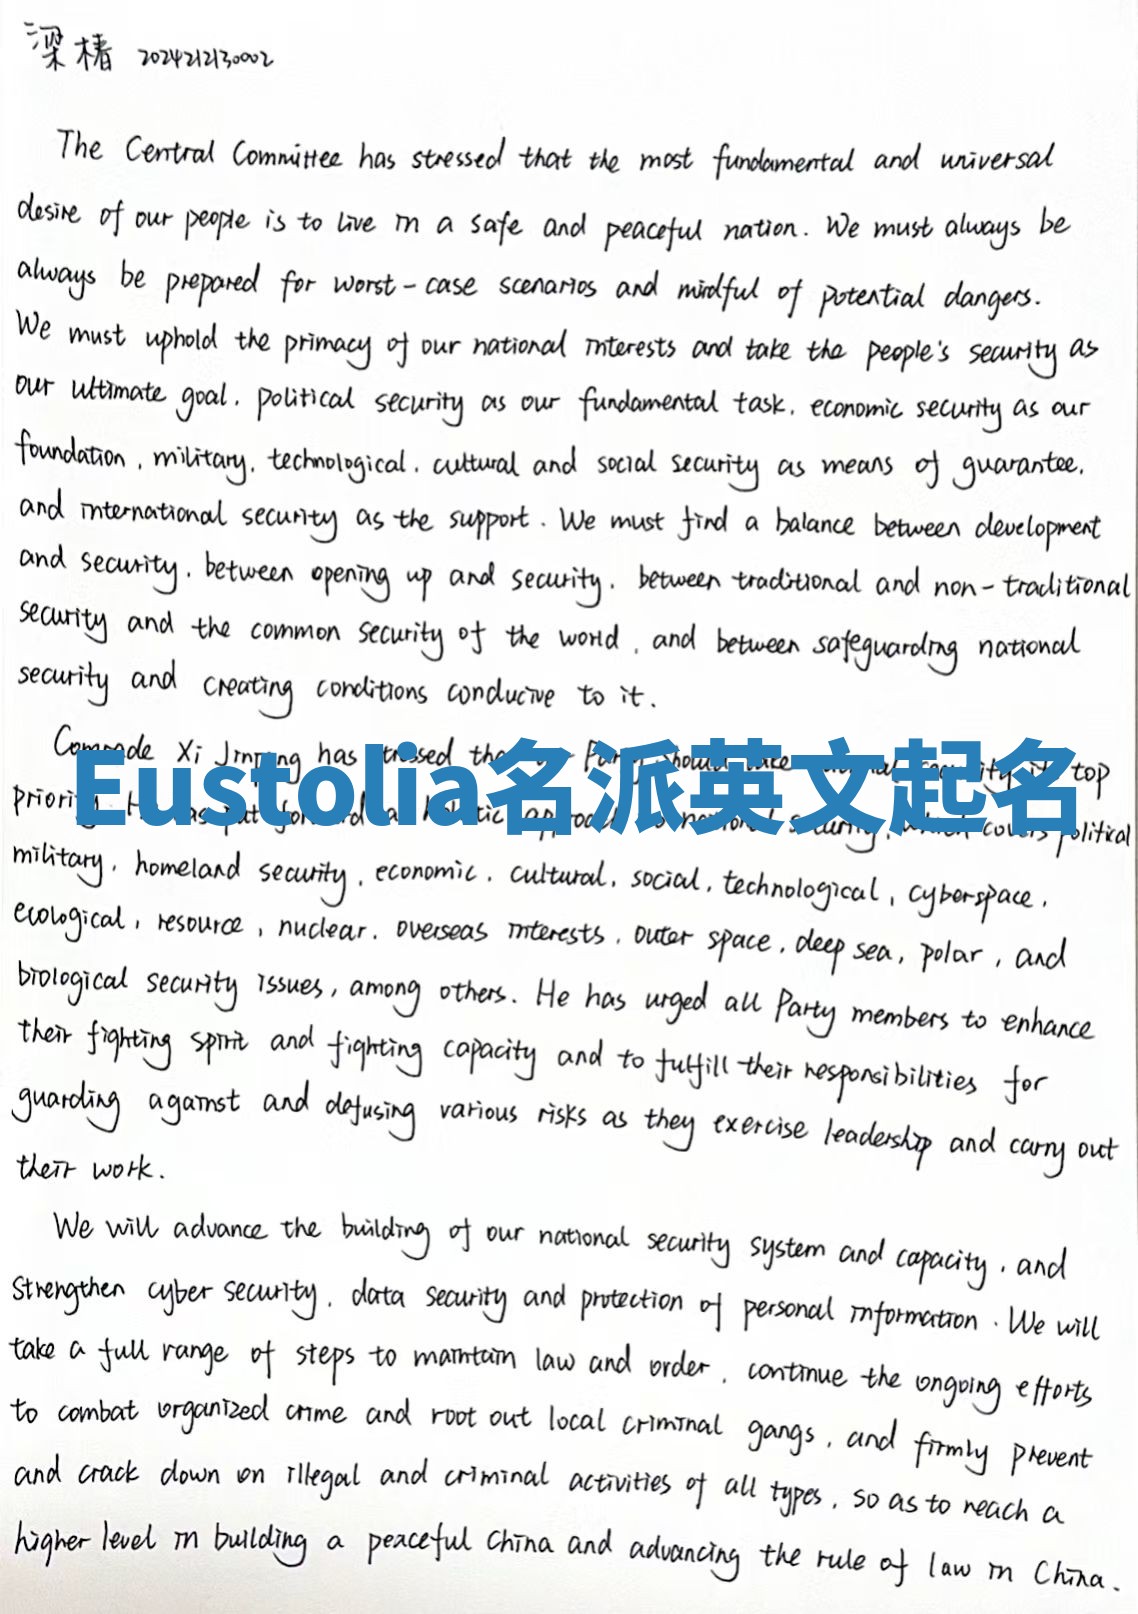 梁椿 2024212130002
The Central Committee has stressed that the most fundamental and universal
desire of our people is to live in a safe and peaceful nation. We must always be
always be prepared for worst-case scenarios and mindful of potential dangers.
We must uphold the primacy of our national interests and take the people's security as
our ultimate goal, political security as our fundamental task, economic security as our
foundation, military, technological, cultural and social security as means of guarantee,
and international security as the support. We must find a balance between development
and security, between opening up and security, between traditional and non-traditional
security and the common security of the world, and between safeguarding national
security and creating conditions conducive to it.
Comrade Xi Jinping has stressed the Party should top
Eustolia名派英文起名
priority put covers political
military, homeland security, economic, cultural, social, technological, cyberspace,
ecological, resource, nuclear, overseas interests, outer space, deep sea, polar, and
biological security issues, among others. He has urged all Party members to enhance
their fighting spirit and fighting capacity and to fulfill their responsibilities for
guarding against and defusing various risks as they exercise leadership and carry out
their work.
We will advance the building of our national security system and capacity, and
strengthen cyber security, data security and protection of personal information. We will
take a full range of steps to maintain law and order, continue the ongoing efforts
to combat organized crime and root out local criminal gangs, and firmly prevent
and crack down on illegal and criminal activities of all types, so as to reach a
higher level in building a peaceful China and advancing the rule of law in China.